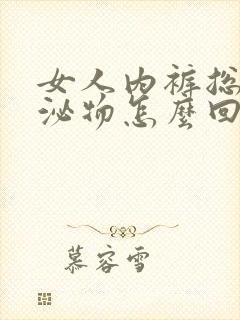 女人内裤总
泌物怎麼回
慕容雪